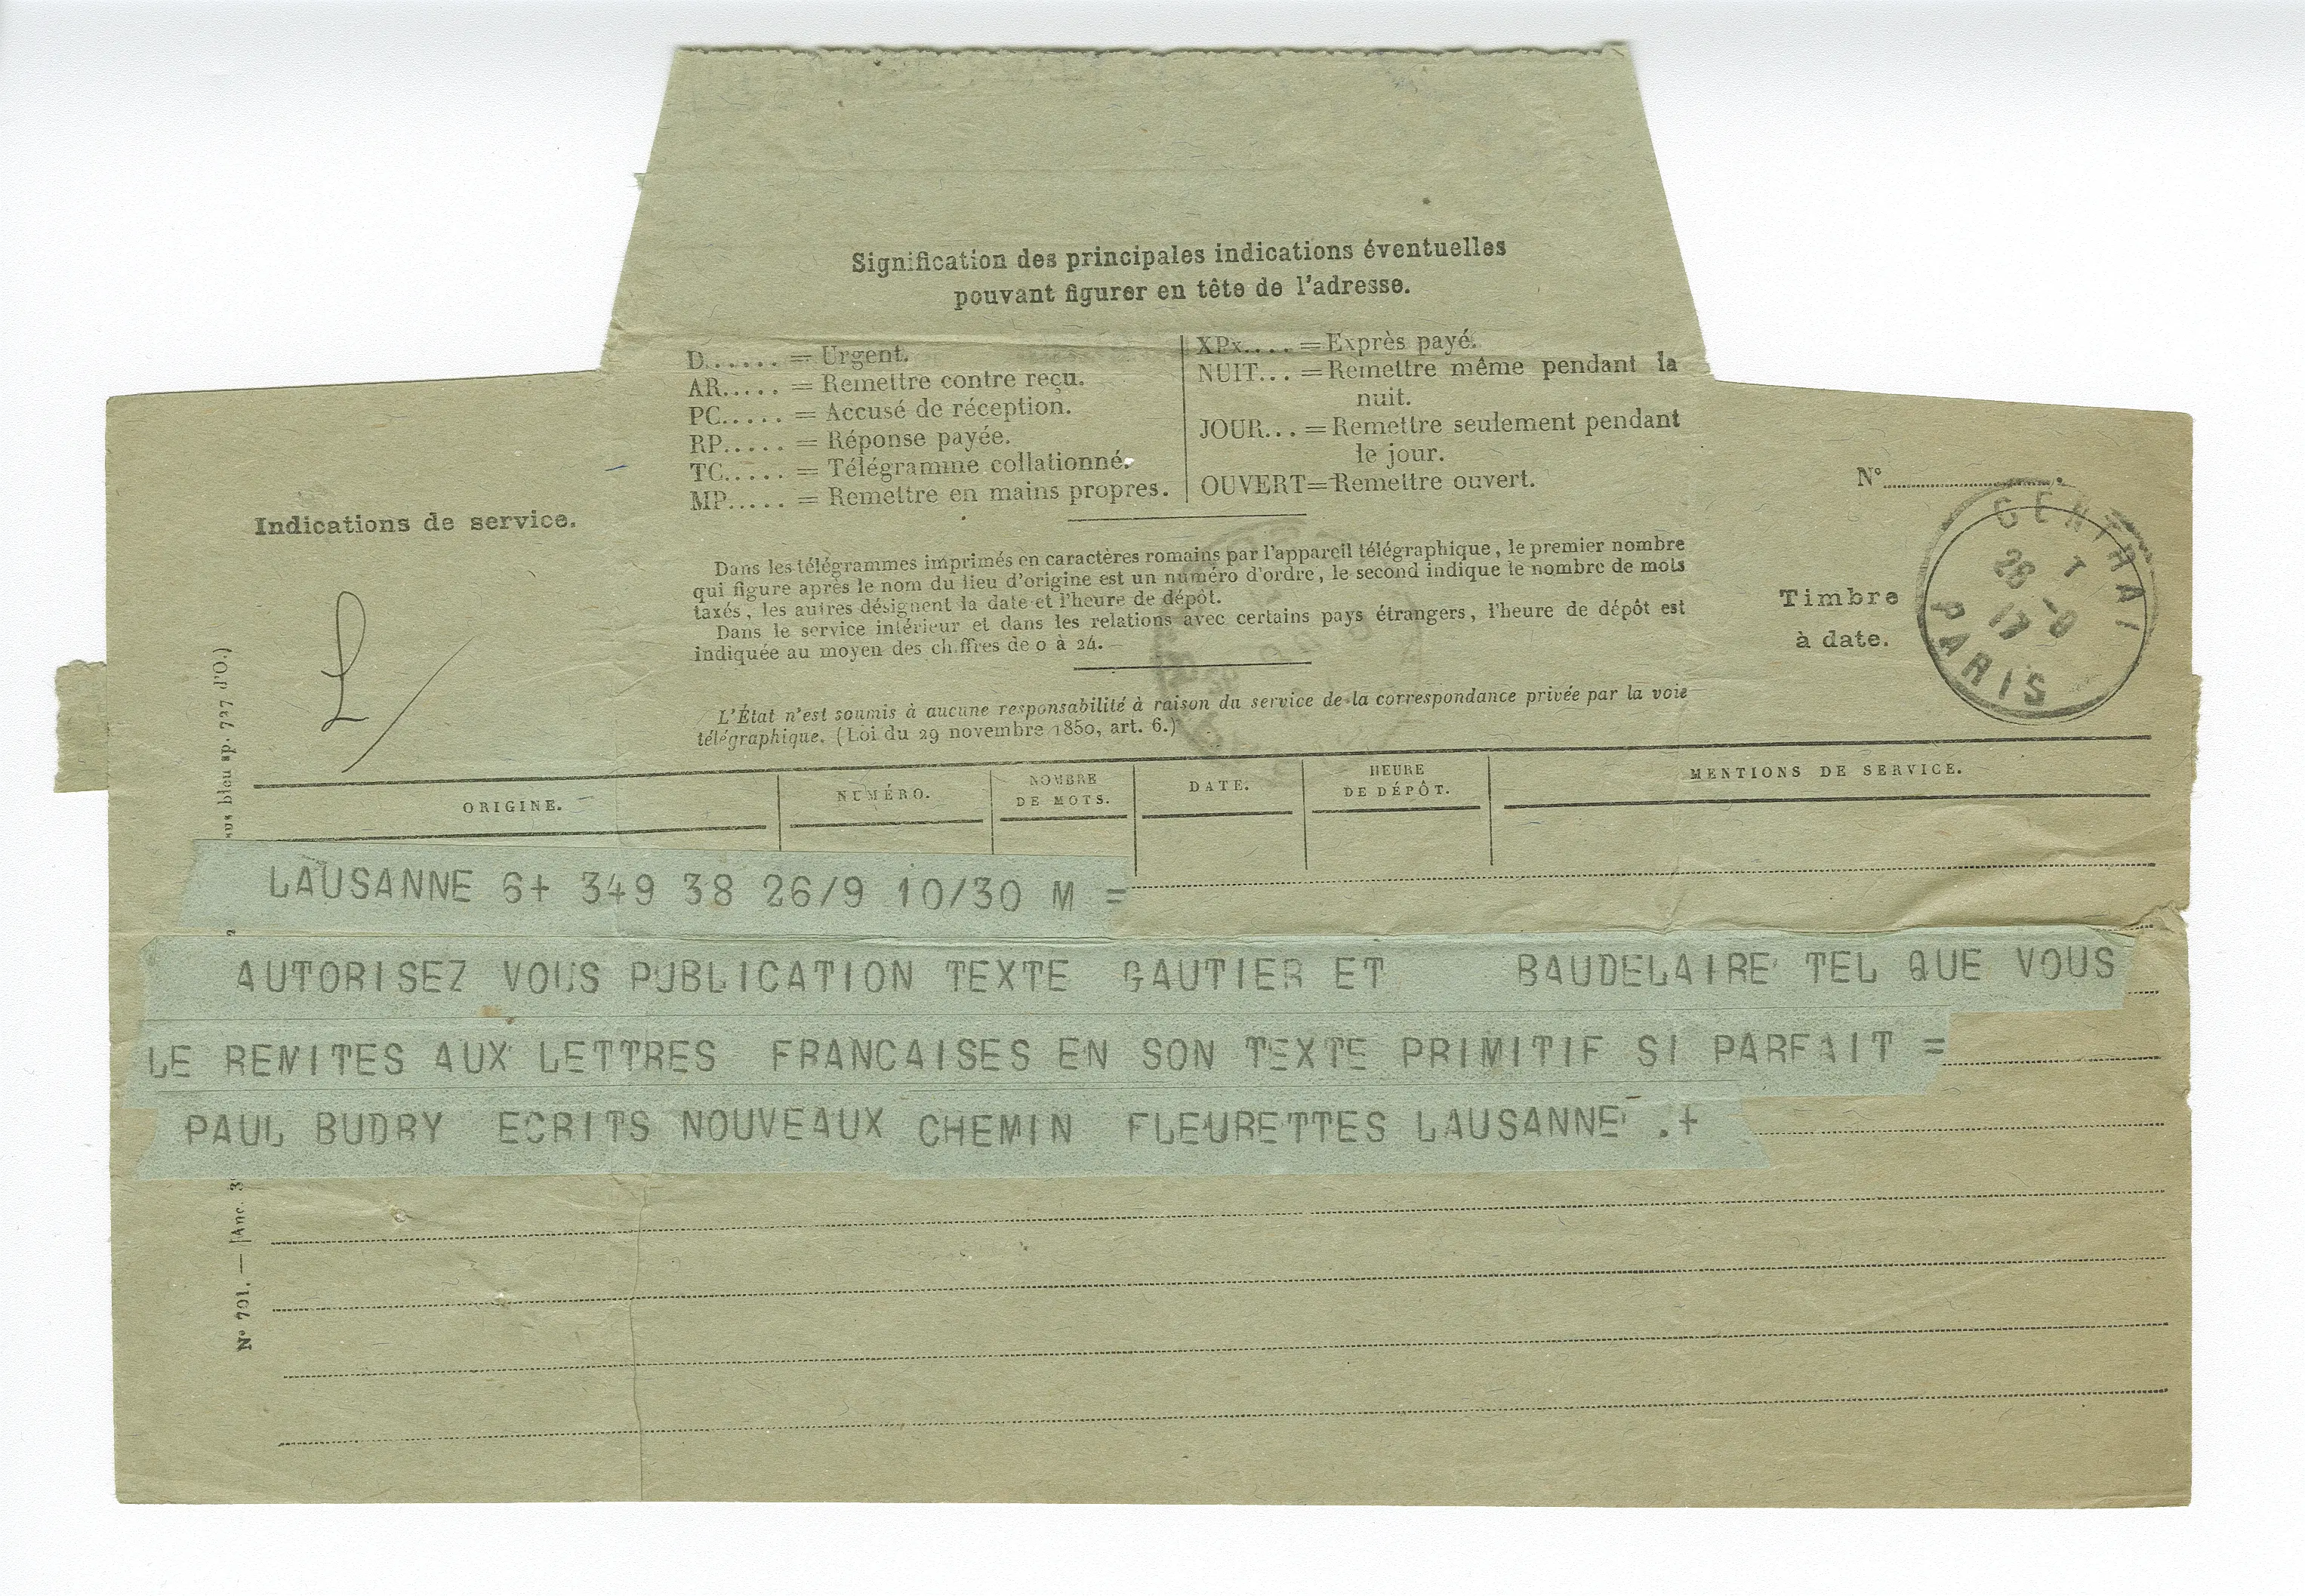 Signification des principales indications éventuelles
pouvant figurer en tête de l'adresse.
D...... = Urgent.
AR..... = Remettre contre reçu.
PC..... = Accusé de réception.
RP..... = Réponse payée.
TC..... = Télégramme collationné.
MP..... = Remettre en mains propres.
XPx.... = Exprès payé.
NUIT... = Remettre même pendant la
nuit.
JOUR... = Remettre seulement pendant
le jour.
OUVERT = Remettre ouvert.
Indications de service.
Dans les télégrammes imprimés en caractères romains par l'appareil télégraphique, le premier nombre
qui figure après le nom du lieu d'origine est un numéro d'ordre, le second indique le nombre de mots
taxés, les autres désignent la date et l'heure de dépôt.
Dans le service intérieur et dans les relations avec certains pays étrangers, l'heure de dépôt est
indiquée au moyen des chiffres de 0 à 24.
L'État n'est soumis à aucune responsabilité à raison du service de la correspondance privée par la voie
télégraphique. (Loi du 29 novembre 1850, art. 6.)
N°
Timbre
à date.
CENTRAL
PARIS
ORIGINE.
NUMÉRO.
NOMBRE
DE MOTS.
DATE.
HEURE
DE DÉPÔT.
MENTIONS DE SERVICE.
LAUSANNE 6+ 349 38 26/9 10/30 M =
AUTORISEZ VOUS PUBLICATION TEXTE GAUTIER ET BAUDELAIRE TEL QUE VOUS
LE REMITES AUX LETTRES FRANCAISES EN SON TEXTE PRIMITIF SI PARFAIT =
PAUL BUDRY ECRITS NOUVEAUX CHEMIN FLEURETTES LAUSANNE .+
N° 701. — [Anc. 3
bleu sp. 727 d'O.)